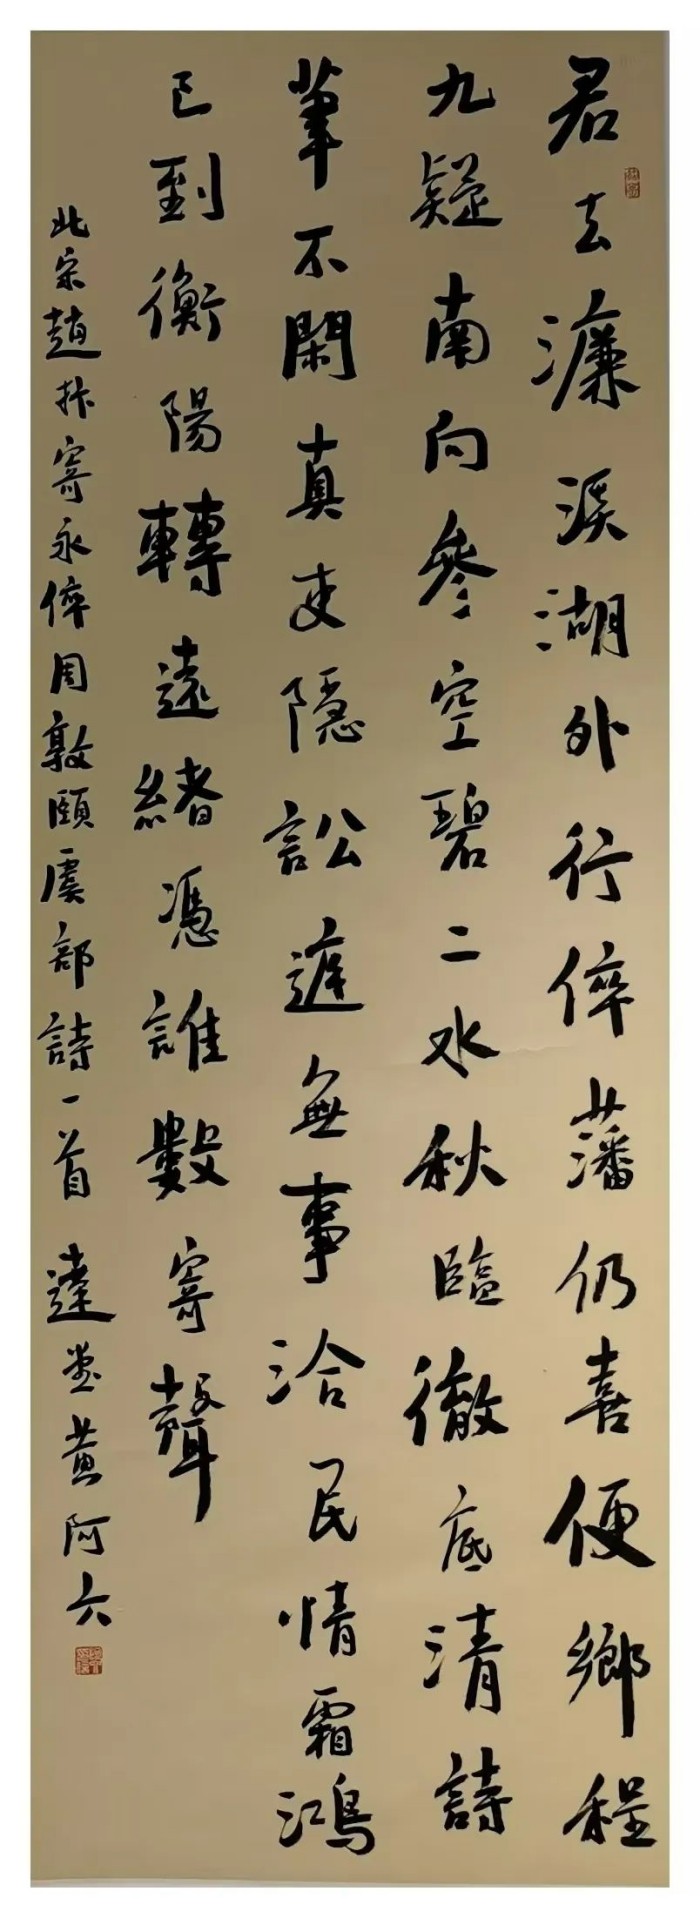 君去濂溪湖外行倅藩仍喜便鄉程
九疑南向參空碧二水秋臨徹底清詩
筆不閑真吏隱訟遲無事洽民情霜鴻
已到衡陽轉遠緒憑誰數寄聲
北宋趙抃寄永倅周敦頤虞部詩一首 達堂黄阿六